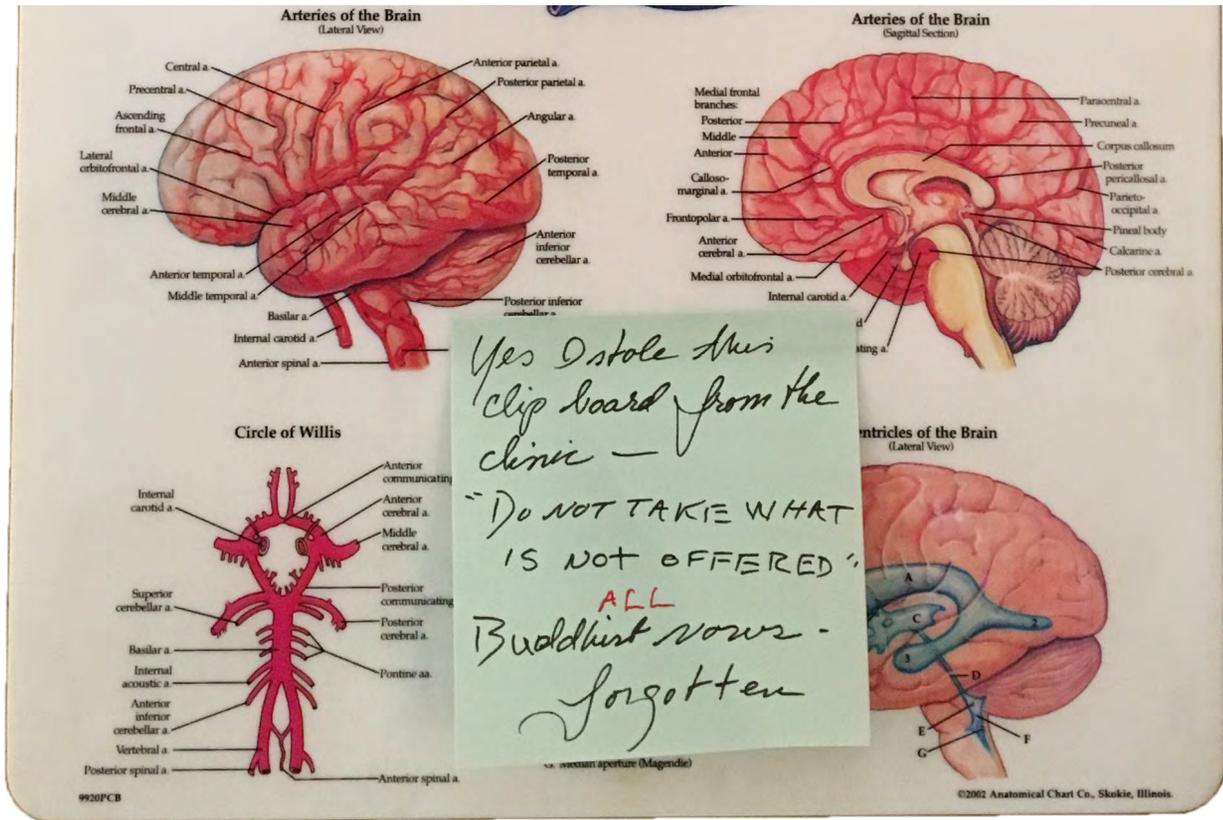 Arteries of the Brain
(Lateral View)
Central a.
Precentral a.
Ascending
frontal a.
Lateral
orbitofrontal a.
Middle
cerebral a.
Anterior temporal a.
Middle temporal a.
Basilar a.
Internal carotid a.
Anterior spinal a.
Anterior parietal a.
Posterior parietal a.
Angular a.
Posterior
temporal a.
Anterior
inferior
cerebellar a.
Posterior inferior
cerebellar a.
Arteries of the Brain
(Sagittal Section)
Medial frontal
branches:
Posterior
Middle
Anterior
Calloso-
marginal a.
Frontopolar a.
Anterior
cerebral a.
Medial orbitofrontal a.
Internal carotid a.
d
ating a.
Paracentral a.
Precuneal a.
Corpus callosum
Posterior
pericallosal a.
Parieto-
occipital a.
Pineal body
Calcarine a.
Posterior cerebral a.
Yes I stole this
clip board from the
clinic —
"DO NOT TAKE WHAT
IS NOT OFFERED".
ALL
Buddhist vows -
forgotten
Circle of Willis
Internal
carotid a.
Superior
cerebellar a.
Basilar a.
Internal
acoustic a.
Anterior
inferior
cerebellar a.
Vertebral a.
Posterior spinal a.
Anterior
communicating
Anterior
cerebral a.
Middle
cerebral a.
Posterior
communicating
Posterior
cerebral a.
Pontine aa.
Anterior spinal a.
entricles of the Brain
(Lateral View)
A
C
2
3
D
E
F
G
G. Median aperture (Magendie)
9920PCB
©2002 Anatomical Chart Co., Skokie, Illinois.